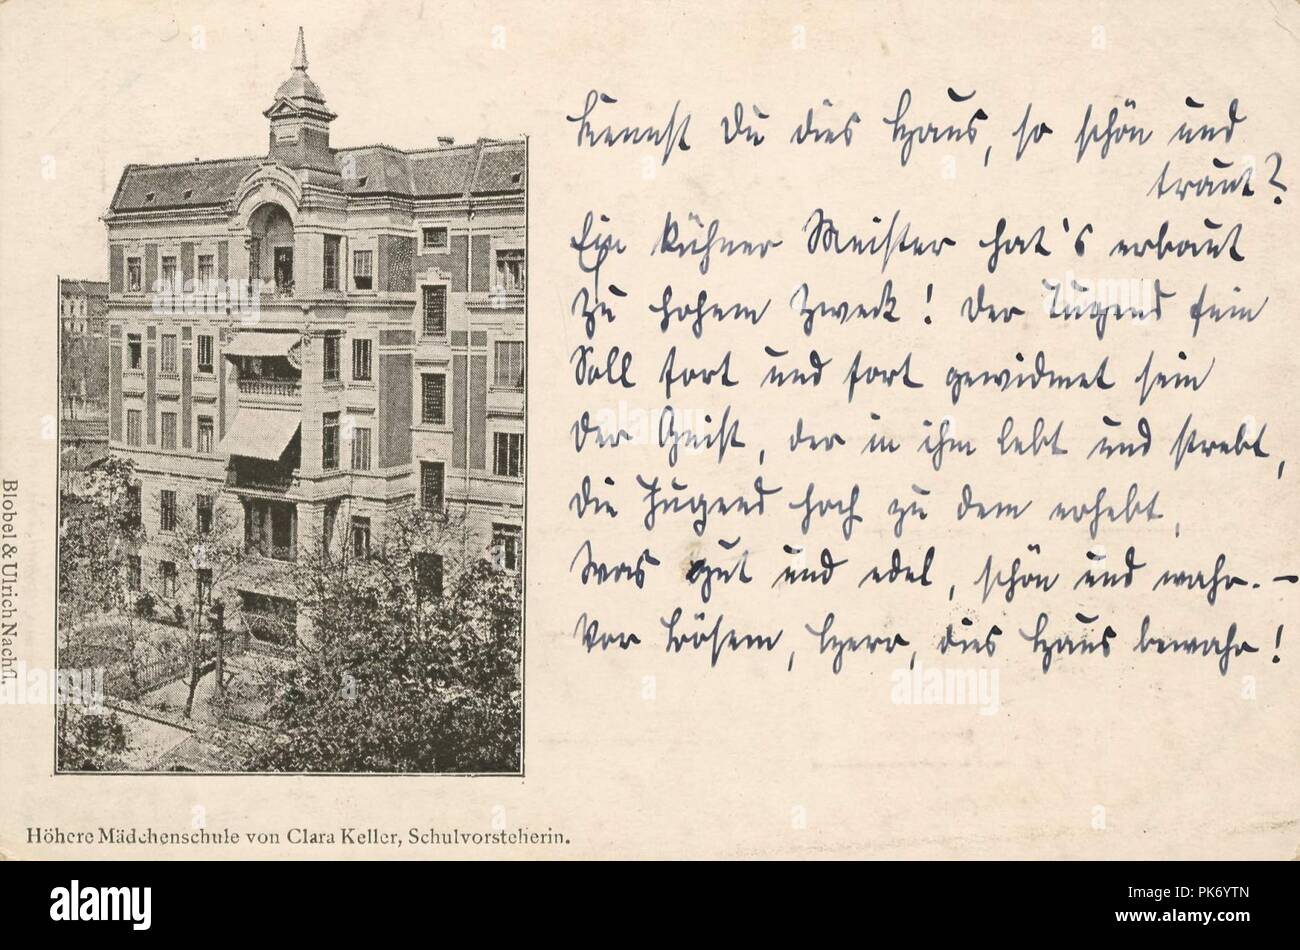 Kennst Du dies Haus, so schön und
traut?
Ein kühner Meister hat's erbaut
Zu hohem Zweck! Der Jugend fein
Soll fort und fort gewidmet sein
Der Geist, der in ihm lebt und strebt,
Die Jugend hoch zu dem erhebt,
Was gut und edel, schön und wahr. –
Vor Bösem, Herr, dies Haus bewahr!
Blobel & Ulrich Nachfl.
Höhere Mädchenschule von Clara Keller, Schulvorsteherin.
alamy
Image ID: PK6YTN
www.alamy.com